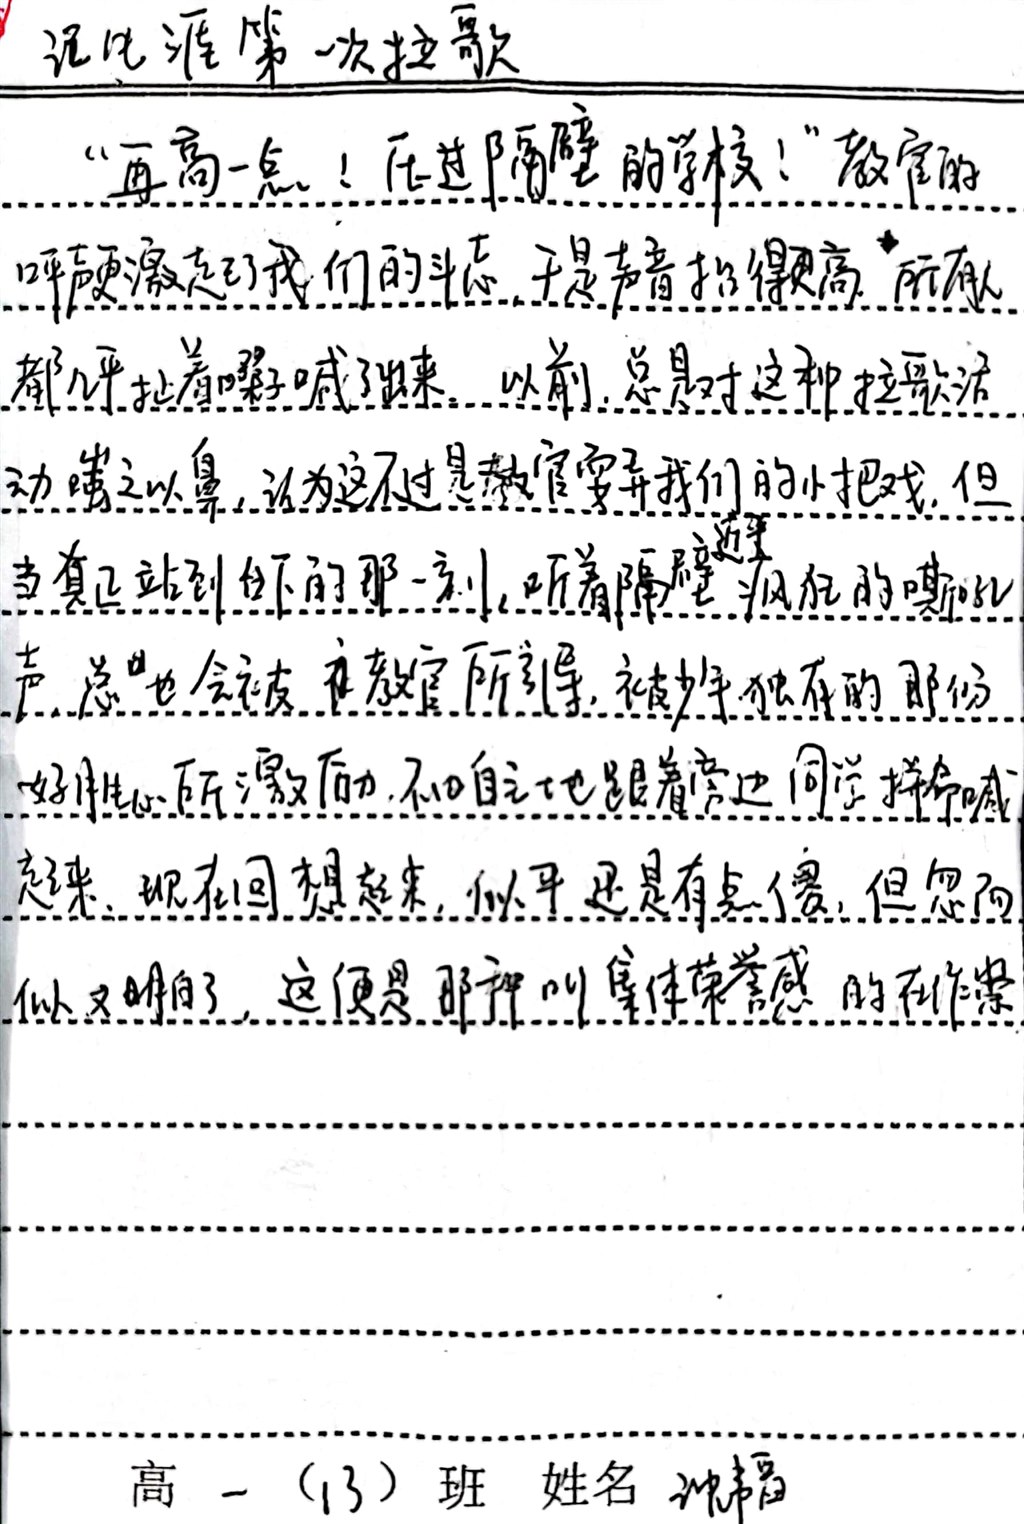 记生涯第一次拉歌
“再高一点！压过隔壁的学校！”教官的
呼声更激起了我们的斗志，于是声音抬得更高，所有人
都几乎扯着嗓子喊了出来。以前，总是对这种拉歌活
动嗤之以鼻，认为这不过是教官耍弄我们的小把戏，但
当真正站到台下的那一刻，听着隔壁近乎疯狂的嘶吼
声，总也会被教官所引导，被少年独有的那份
好胜心所激励，不由自主地跟着旁边同学拼命喊
起来，现在回想起来，似乎还是有点傻，但忽而
似又明白了，这便是那种叫集体荣誉感的在作祟
高一（13）班 姓名